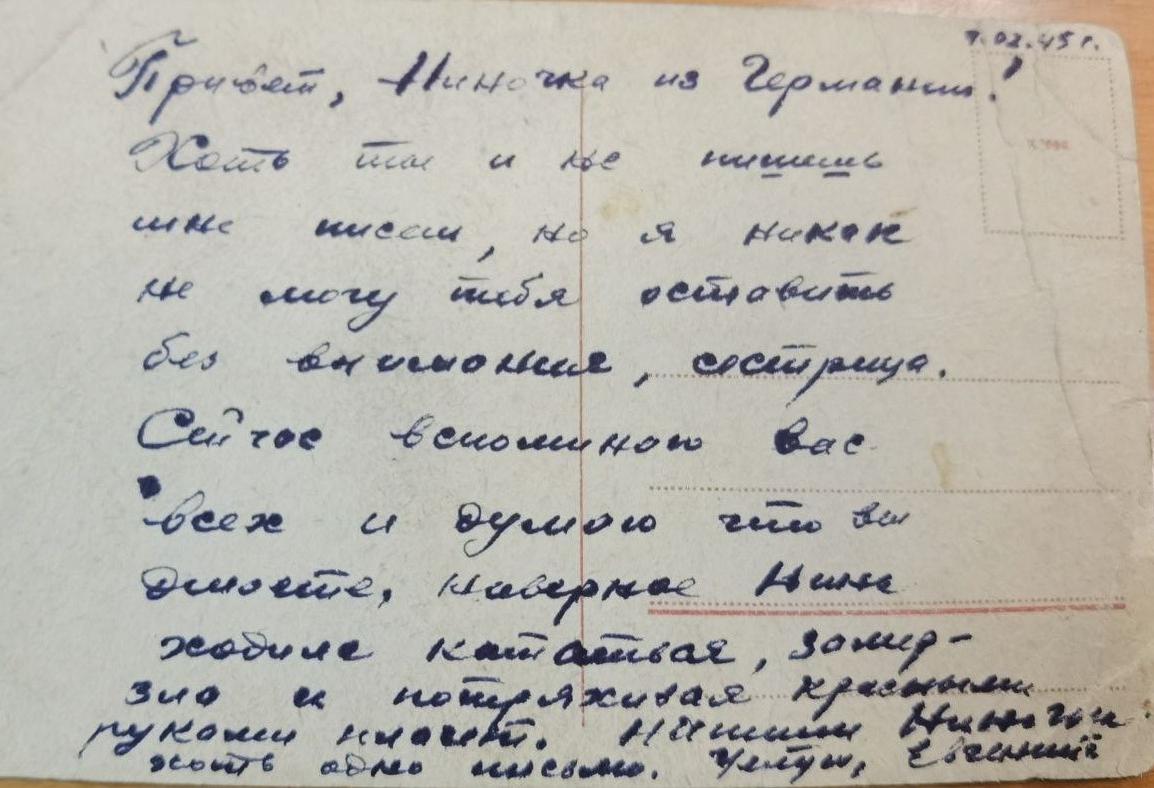 7.02.45 г.
Привет, Ниночка из Германии!
Хоть ты и не пишешь
мне писем, но я никак
не могу тебя оставить
без внимания, сестрица.
Сейчас вспоминаю вас
всех и думаю что вы
делаете, наверное Нина
ходила кататься, замерз-
зла и потряхивая красными
руками плачет. Напиши Ниночка
хоть одно письмо. Целую, Евгений